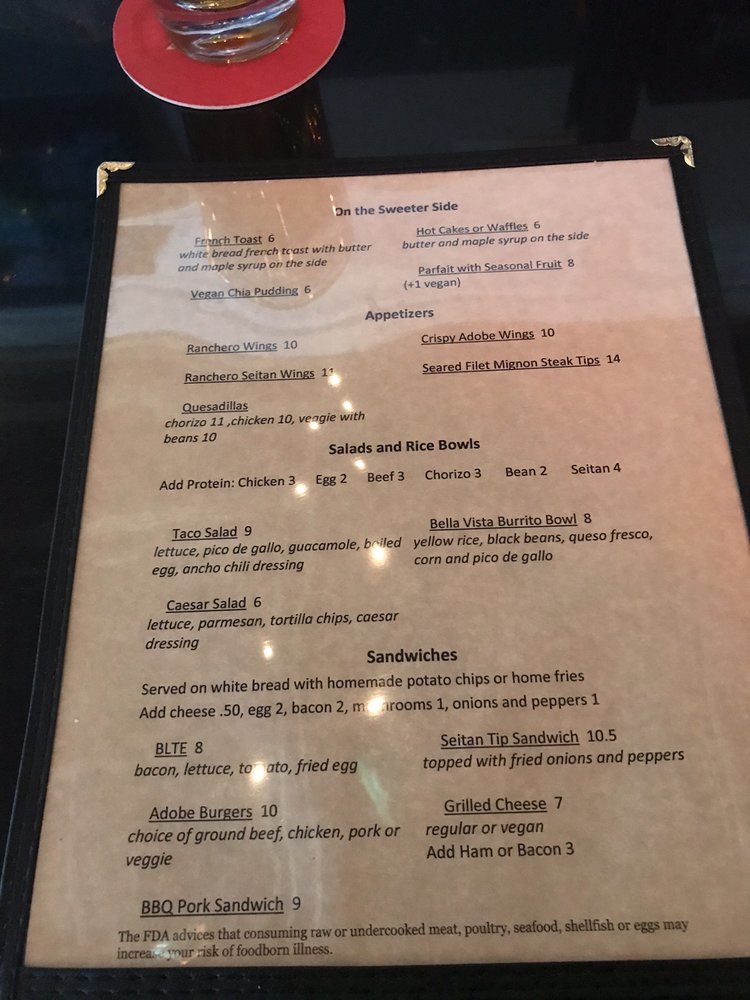 On the Sweeter Side
French Toast 6
white bread french toast with butter
and maple syrup on the side
Hot Cakes or Waffles 6
butter and maple syrup on the side
Vegan Chia Pudding 6
Parfait with Seasonal Fruit 8
(+1 vegan)
Appetizers
Ranchero Wings 10
Crispy Adobe Wings 10
Ranchero Seitan Wings 11
Seared Filet Mignon Steak Tips 14
Quesadillas
chorizo 11 ,chicken 10, veggie with
beans 10
Salads and Rice Bowls
Add Protein: Chicken 3 Egg 2 Beef 3 Chorizo 3 Bean 2 Seitan 4
Taco Salad 9
lettuce, pico de gallo, guacamole, boiled
egg, ancho chili dressing
Bella Vista Burrito Bowl 8
yellow rice, black beans, queso fresco,
corn and pico de gallo
Caesar Salad 6
lettuce, parmesan, tortilla chips, caesar
dressing
Sandwiches
Served on white bread with homemade potato chips or home fries
Add cheese .50, egg 2, bacon 2, mushrooms 1, onions and peppers 1
BLTE 8
bacon, lettuce, tomato, fried egg
Seitan Tip Sandwich 10.5
topped with fried onions and peppers
Adobe Burgers 10
choice of ground beef, chicken, pork or
veggie
Grilled Cheese 7
regular or vegan
Add Ham or Bacon 3
BBQ Pork Sandwich 9
The FDA advices that consuming raw or undercooked meat, poultry, seafood, shellfish or eggs may
increase your risk of foodborn illness.